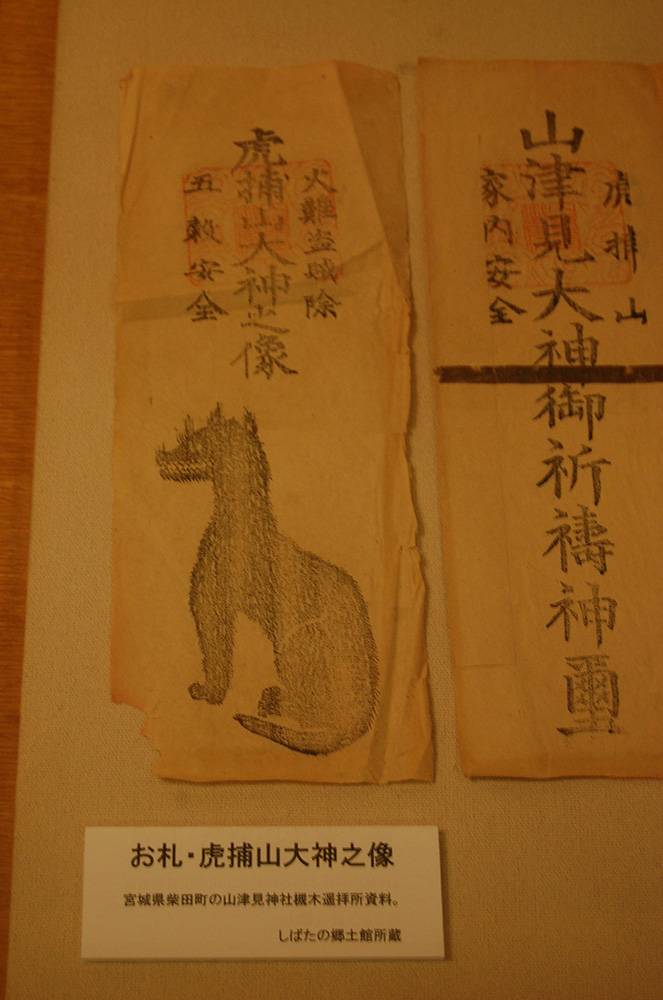 火難盗賊除
虎捕山大神之像
五穀安全
虎捕山
山津見大神御祈禱神璽
家内安全
お札・虎捕山大神之像
宮城県柴田町の山津見神社槻木遥拝所資料。
しばたの郷土館所蔵